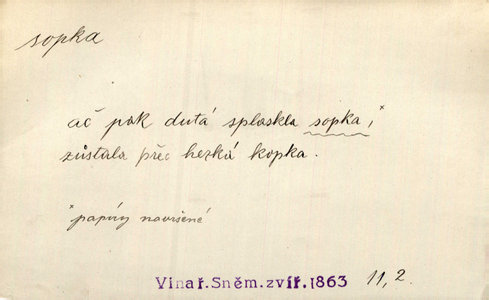 sopka
ač pak dutá splaskla sopka,ˣ
zůstala přec hezká kopka.
ˣ papíry navršené
Vinař.Sněm.zvíř.1863 11,2.